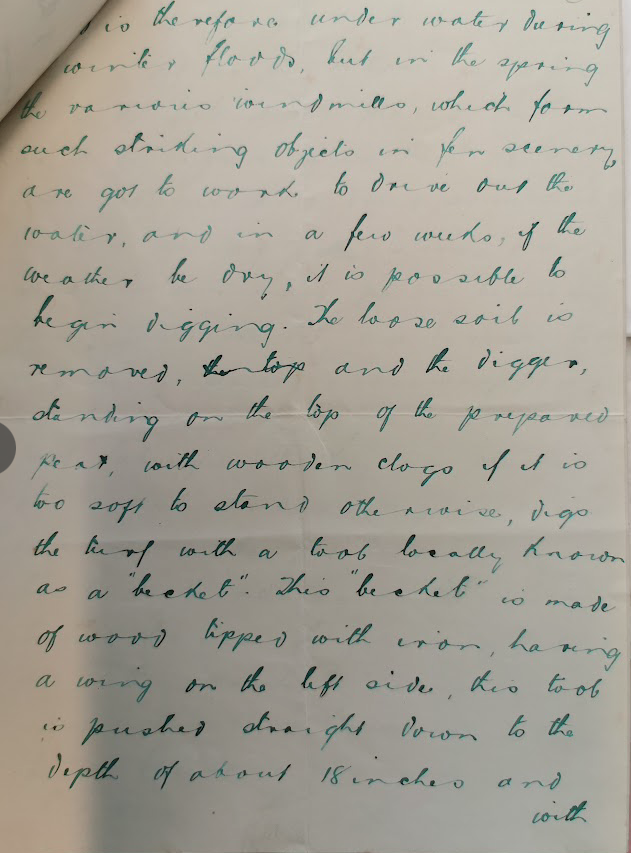 is therefore under water during
winter floods, but in the spring
the various windmills, which form
such striking objects in fen scenery,
are got to work to drive out the
water, and in a few weeks, if the
weather be dry, it is possible to
begin digging. The loose soil is
removed, and the digger,
standing on the top of the prepared
peat, with wooden clogs if it is
too soft to stand otherwise, digs
the turf with a tool locally known
as a "becket". This "becket" is made
of wood tipped with iron, having
a wing on the left side, this tool
is pushed straight down to the
depth of about 18 inches and
with